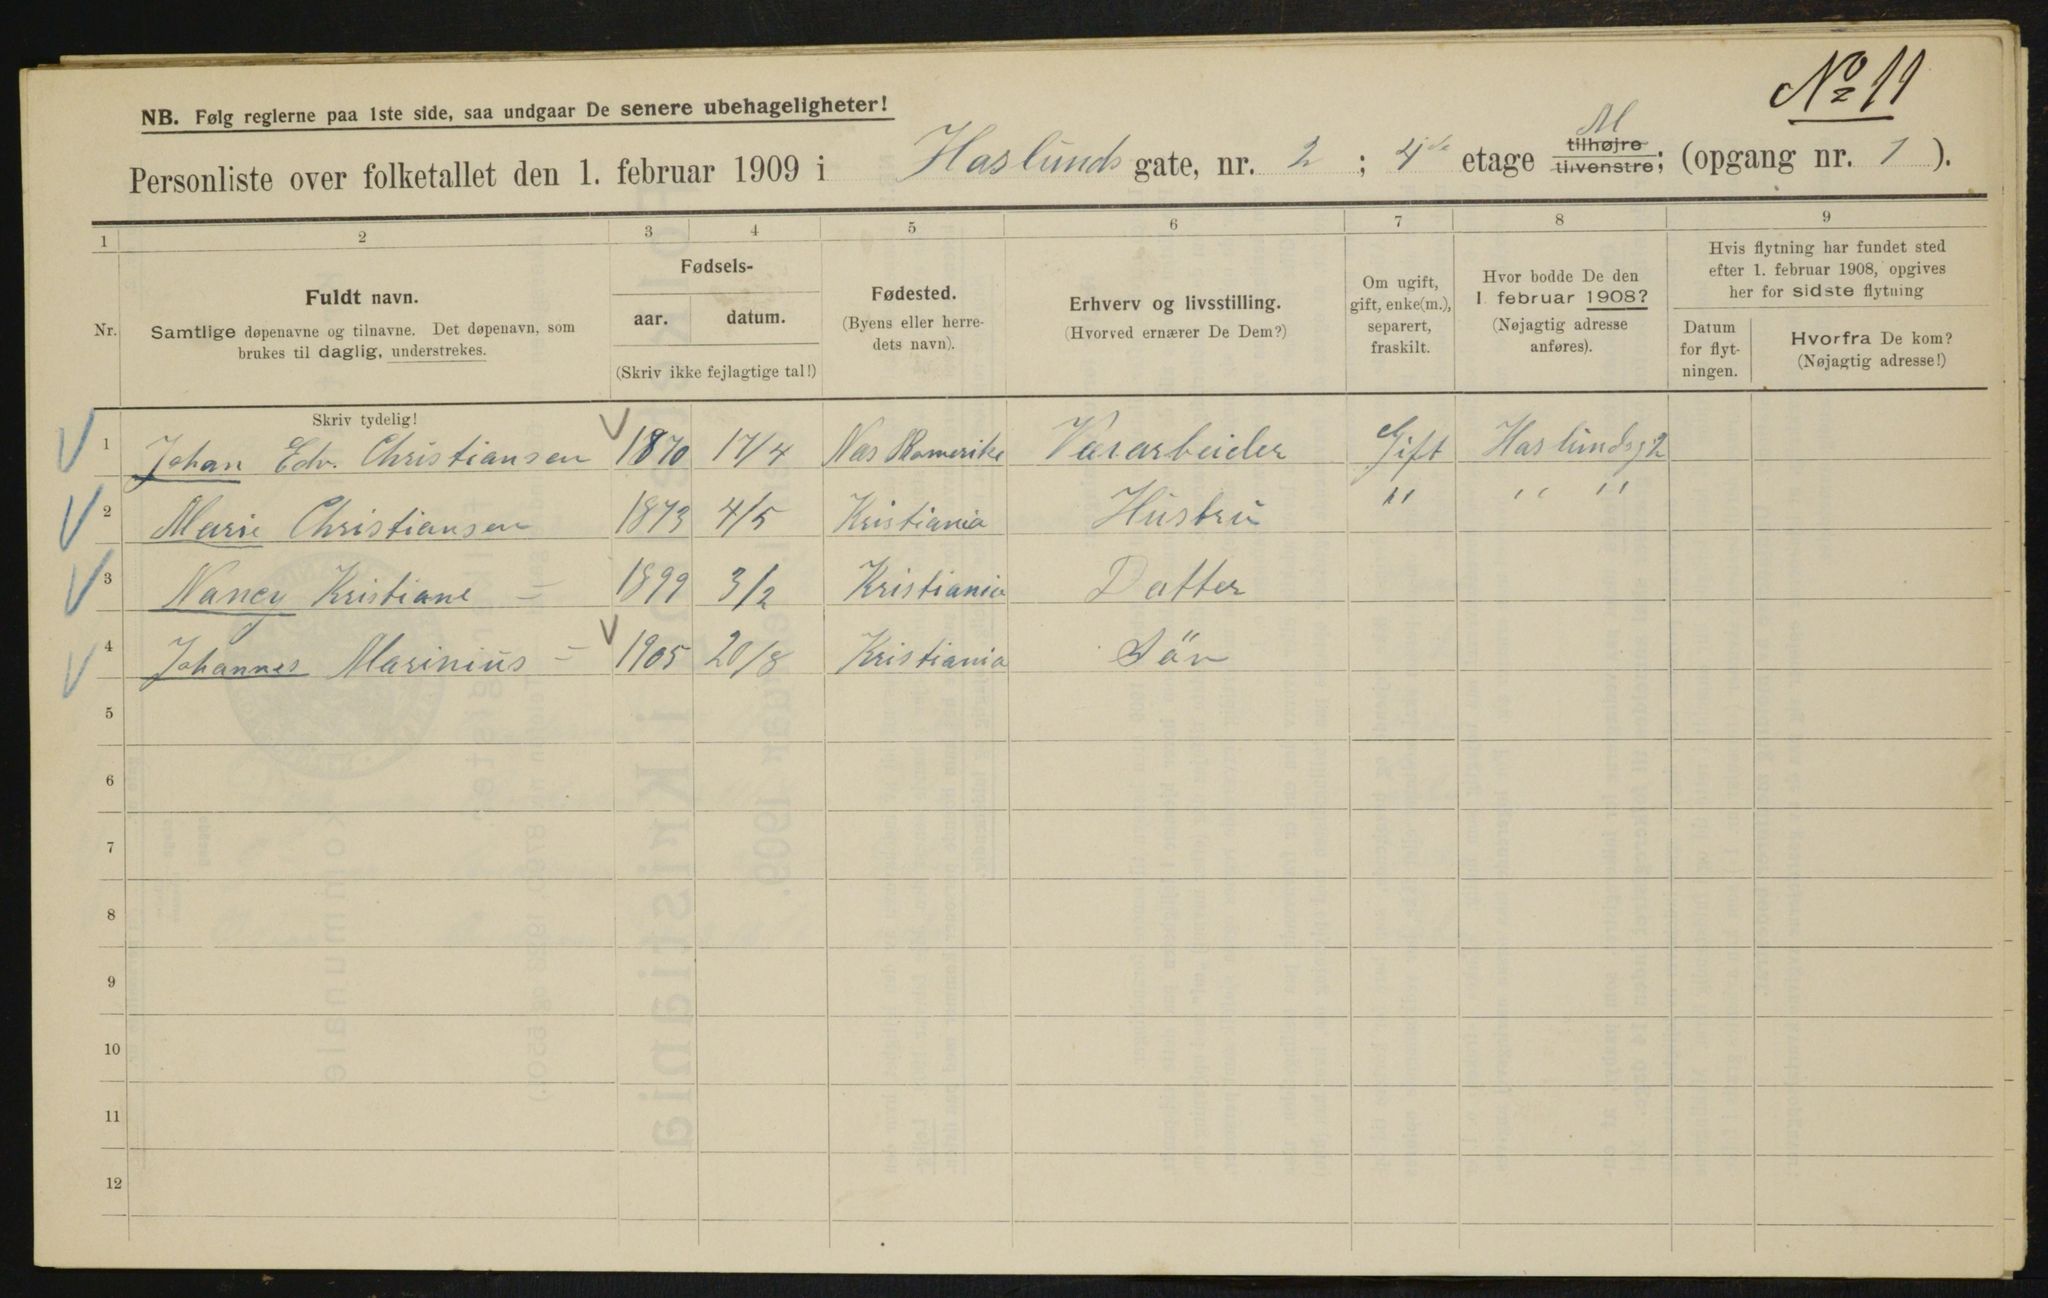 No 11
NB. Følg reglerne paa 1ste side, saa undgaar De senere ubehageligheter!
Personliste over folketallet den 1. februar 1909 i Haslunds gate, nr. 2 ; 4de etage M tilhøjre tilvenstre; (opgang nr. 1 ).
1 2 3 4 5 6 7 8 9
Nr.
Fuldt navn.
Samtlige døpenavne og tilnavne. Det døpenavn, som
brukes til daglig, understrekes.
Fødsels-
aar. datum.
(Skriv ikke fejlagtige tal!)
Fødested.
(Byens eller herre-
dets navn).
Erhverv og livsstilling.
(Hvorved ernærer De Dem?)
Om ugift,
gift, enke(m.),
separert,
fraskilt.
Hvor bodde De den
1. februar 1908?
(Nøjagtig adresse
anføres).
Hvis flytning har fundet sted
efter 1. februar 1908, opgives
her for sidste flytning
Datum
for flyt-
ningen.
Hvorfra De kom?
(Nøjagtig adresse!)
Skriv tydelig!
1 Johan Edv. Christiansen 1870 17/4 Nas Romerike Vararbeider Gift Haslundsg 2
2 Marie Christiansen 1873 4/5 Kristiania Hustru " " "
3 Nancy Kristiane = 1899 3/2 Kristiania Datter
4 Johannes Marinius = 1905 20/8 Kristiania Sön
5
6
7
8
9
10
11
12